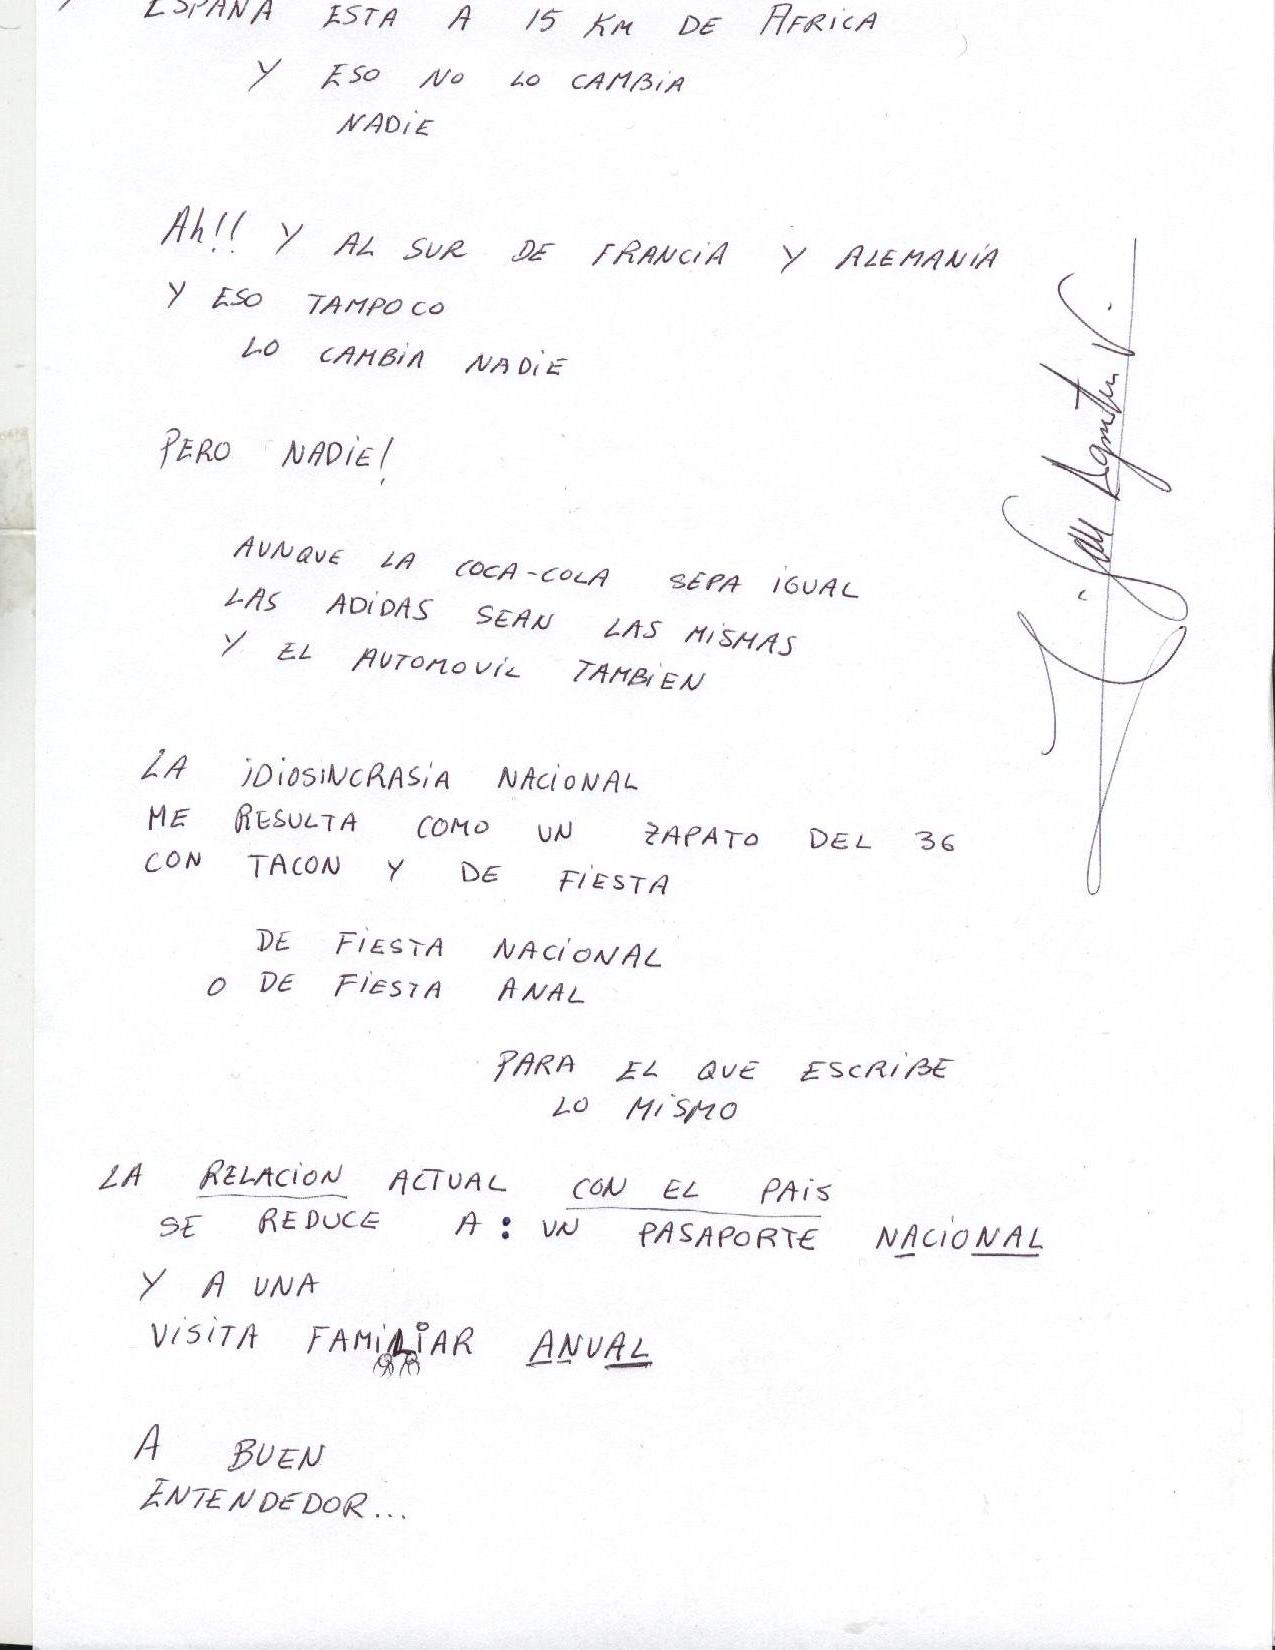 ESPAÑA ESTA A 15 KM DE AFRICA
Y ESO NO LO CAMBIA
NADIE
Ah!! Y AL SUR DE FRANCIA Y ALEMANIA
Y ESO TAMPOCO
LO CAMBIA NADIE
PERO NADIE!
AUNQUE LA COCA-COLA SEPA IGUAL
LAS ADIDAS SEAN LAS MISMAS
Y EL AUTOMOVIL TAMBIEN
LA IDIOSINCRASIA NACIONAL
ME RESULTA COMO UN ZAPATO DEL 36
CON TACON Y DE FIESTA
DE FIESTA NACIONAL
O DE FIESTA ANAL
PARA EL QUE ESCRIBE
LO MISMO
LA RELACION ACTUAL CON EL PAIS
SE REDUCE A: UN PASAPORTE NACIONAL
Y A UNA
VISITA FAMILIAR ANUAL
A BUEN
ENTENDEDOR...